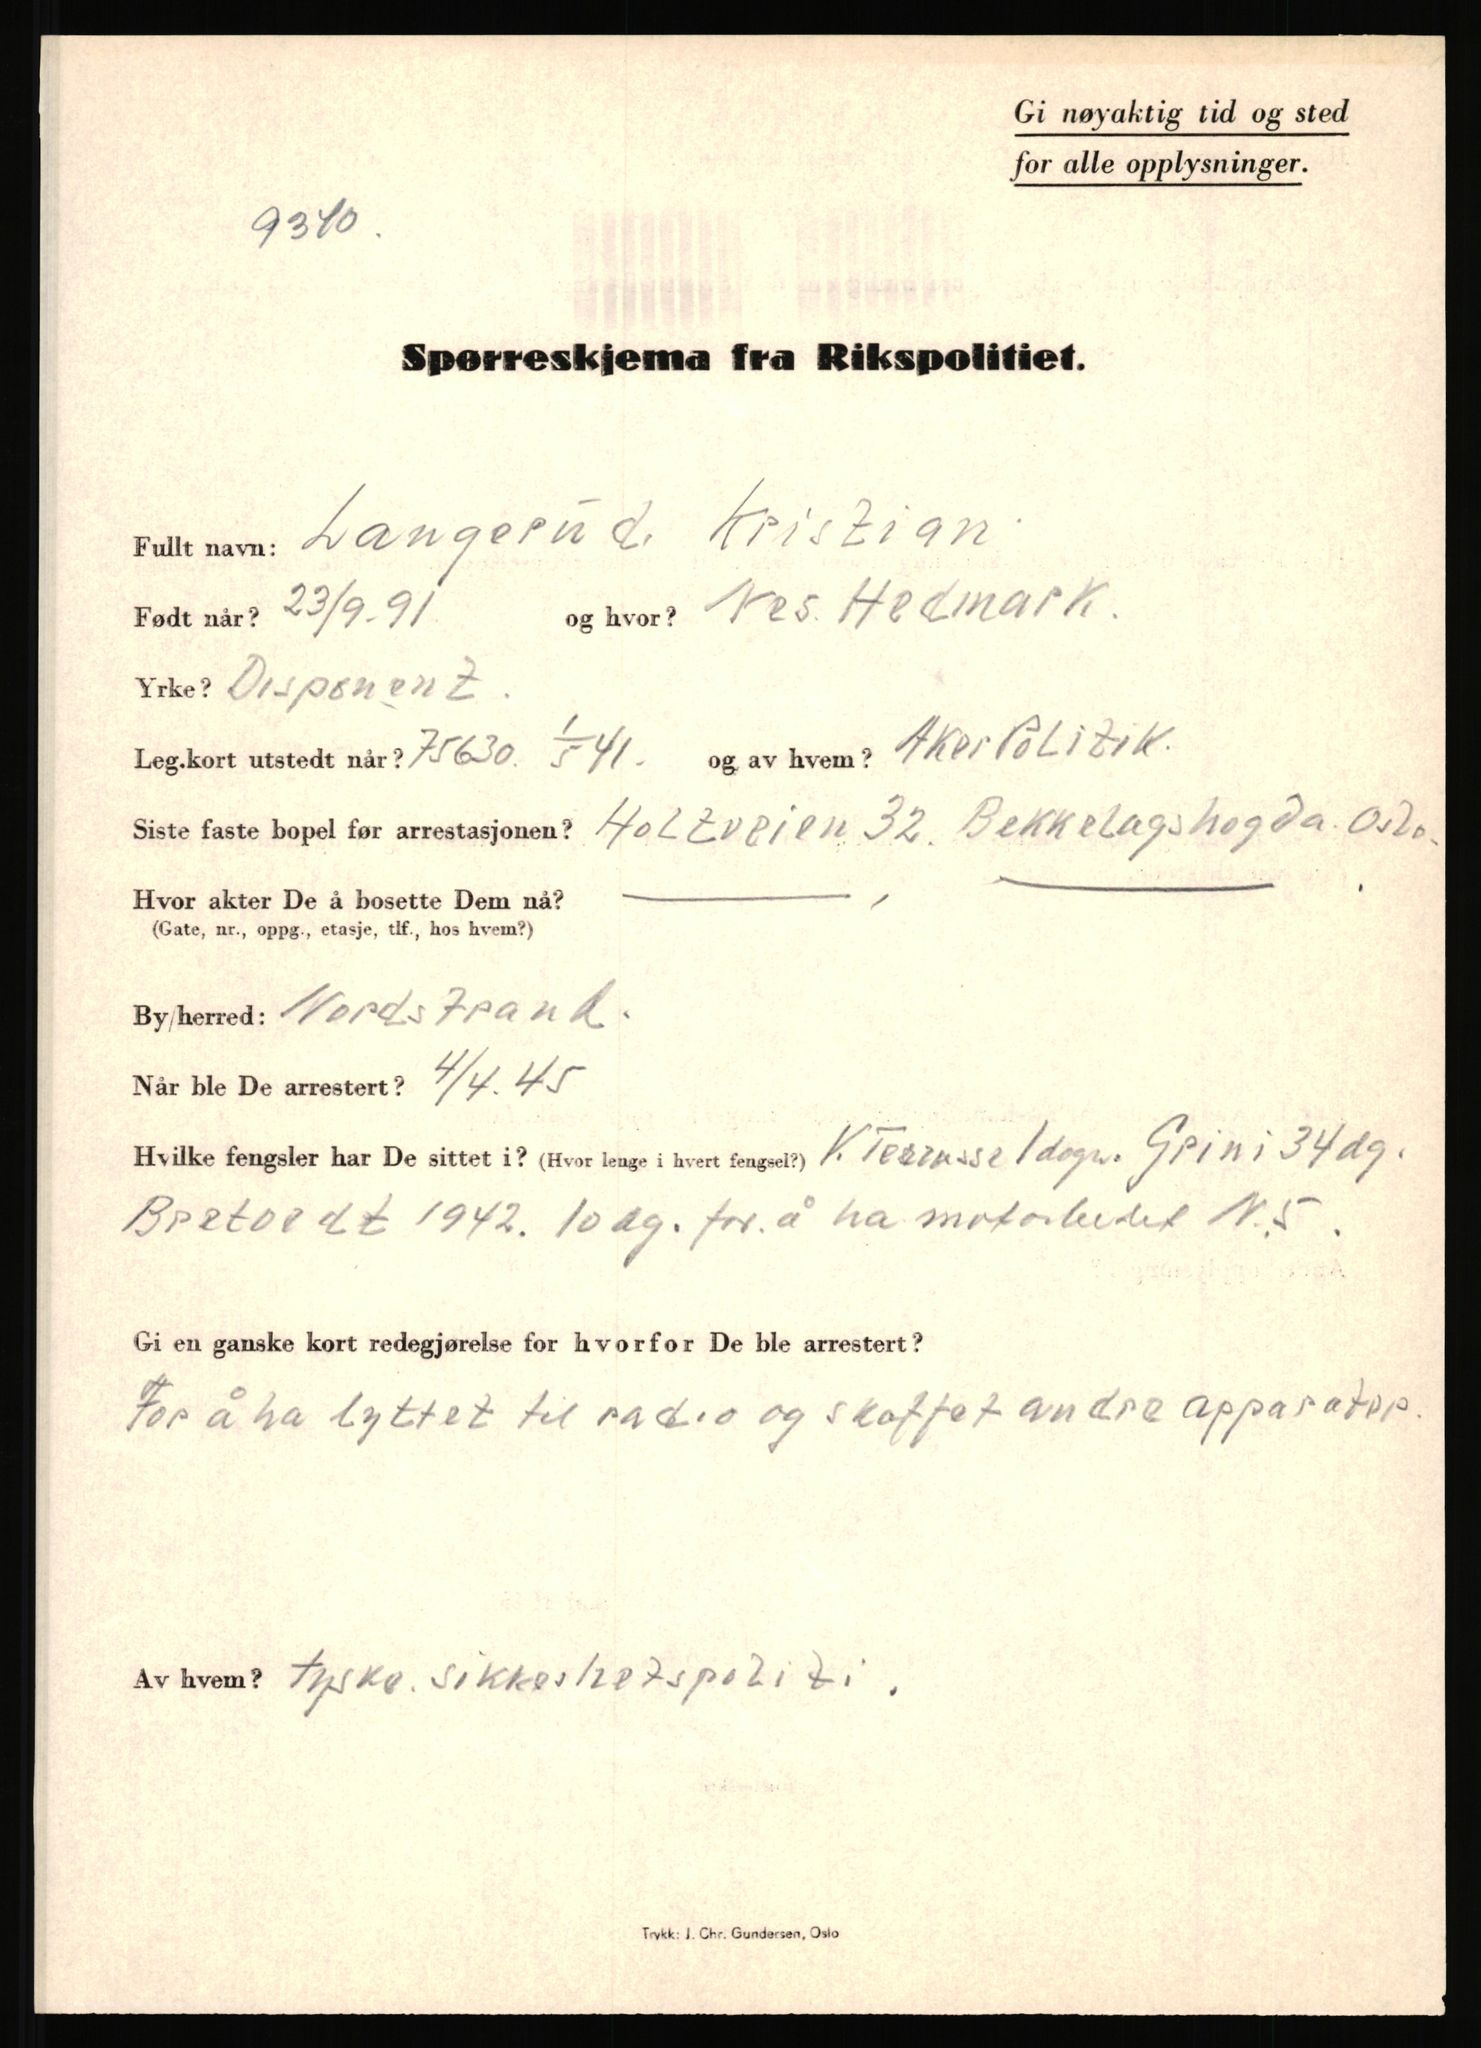 Gi nøyaktig tid og sted
for alle opplysninger.
9340.
Spørreskjema fra Rikspolitiet.
Fullt navn: Langerūd. Kristian.
Født når? 23/9-91 og hvor? Nes. Hedmark.
Yrke? Disponent.
Leg.kort utstedt når? 75630. 1/5 41. og av hvem? Aker Politik.
Siste faste bopel før arrestasjonen? Holtveien 32. Bekkelagshogda. Oslo.
Hvor akter De å bosette Dem nå?
(Gate, nr., oppg., etasje, tlf., hos hvem?)
By/herred: Nordstrand.
Når ble De arrestert? 4/4. 45
Hvilke fengsler har De sittet i? (Hvor lenge i hvert fengsel?) V. Terrasse 1 døgn. Grini 34 dg.
Bretvedt 1942. 10 dg. for. å ha motarbeidet N.S.
Gi en ganske kort redegjørelse for hvorfor De ble arrestert?
For å ha lyttet til radio og skaffet andre apparater.
Av hvem? tyske. sikkerhetspoliti.
Trykk: J. Chr. Gundersen, Oslo